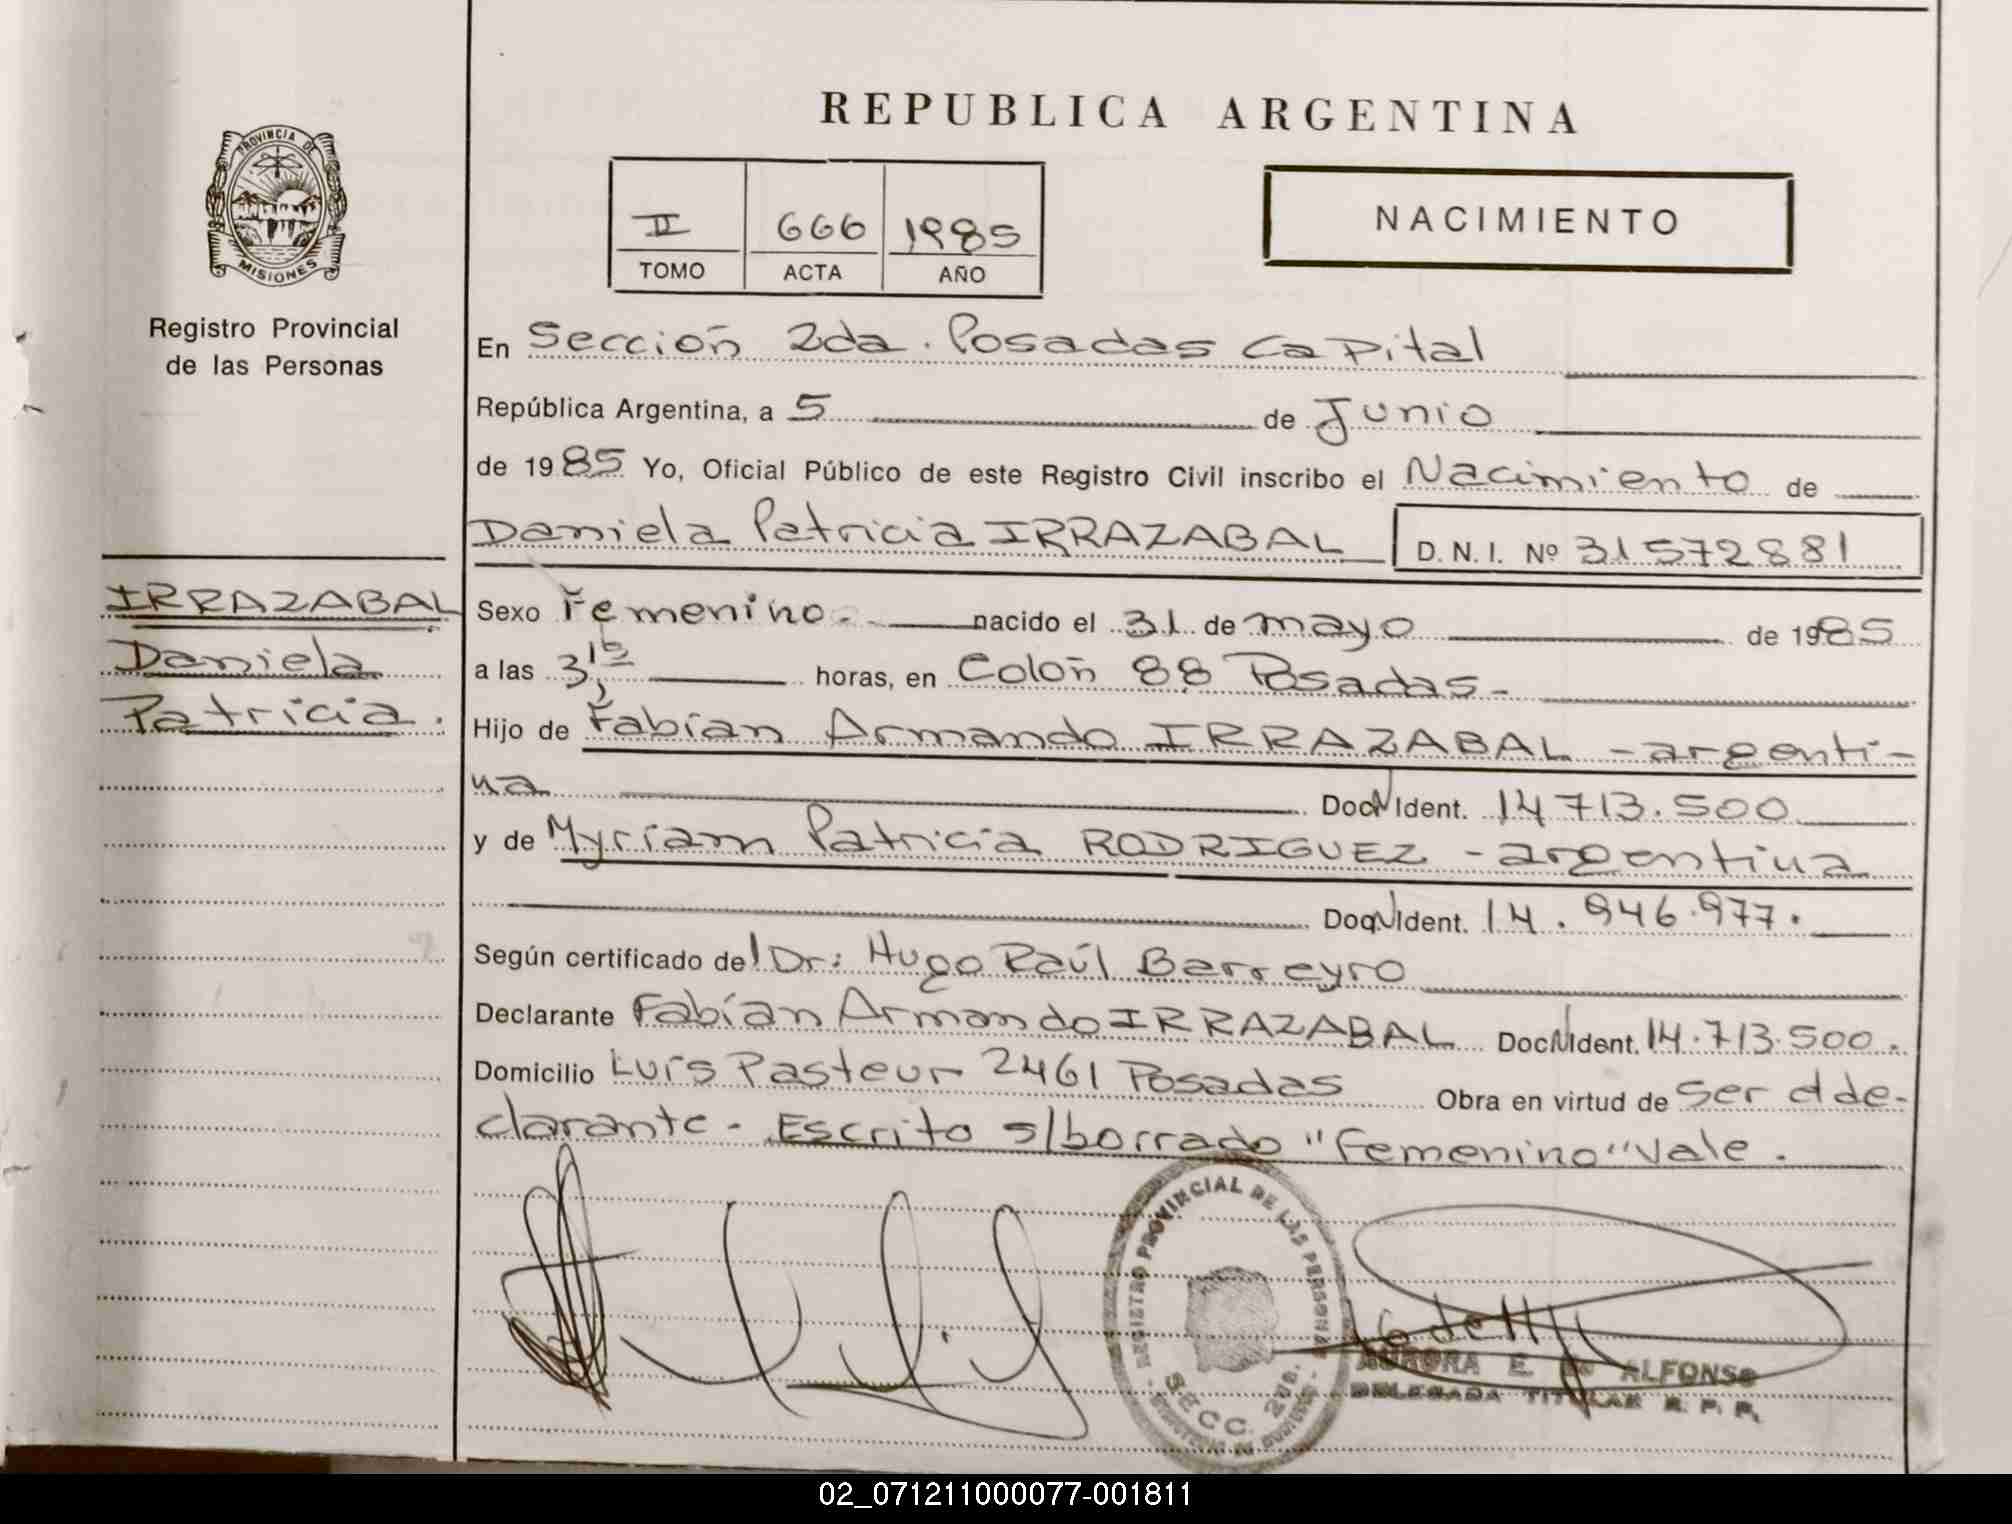 REPUBLICA ARGENTINA
PROVINCIA DE
MISIONES
Registro Provincial
de las Personas
II 666 1985
TOMO ACTA AÑO
NACIMIENTO
En Sección 2da. Posadas Capital
República Argentina, a 5 de Junio
de 1985 Yo, Oficial Público de este Registro Civil inscribo el Nacimiento de
Daniela Patricia IRRAZABAL D.N.I. Nº 31572881
IRRAZABAL
Daniela
Patricia.
Sexo Femenino. nacido el 31 de mayo de 1985
a las 3,15 horas, en Colón 88 Posadas-
Hijo de Fabían Armando IRRAZABAL - argenti-
na Doc N Ident. 14 713.500
y de Myriam Patricia RODRIGUEZ - argentina
Doc N Ident. 14.946.977.
Según certificado del Dr: Hugo Raúl Barreyro
Declarante Fabían Armando IRRAZABAL Doc N Ident. 14.713.500.
Domicilio Luís Pasteur 2461 Posadas Obra en virtud de ser el de-
clarante - Escrito s/borrado "Femenino" Vale.
REGISTRO PROVINCIAL DE LAS PERSONAS
SECC. 2da.
AURORA E. DE ALFONSO
DELEGADA TITULAR R. P. P.
02_071211000077-001811